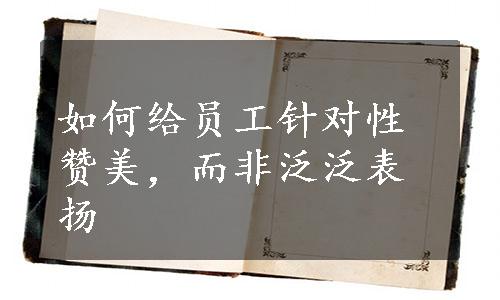 如何给员工针对性
赞美，而非泛泛表
扬